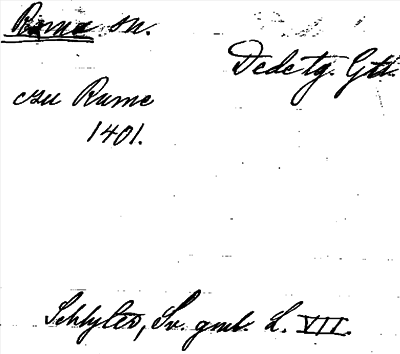 Roma sn.
Dedetg. Gtl.
czu Rume
1401.
Schlyter, Sv. gml. L. VII.